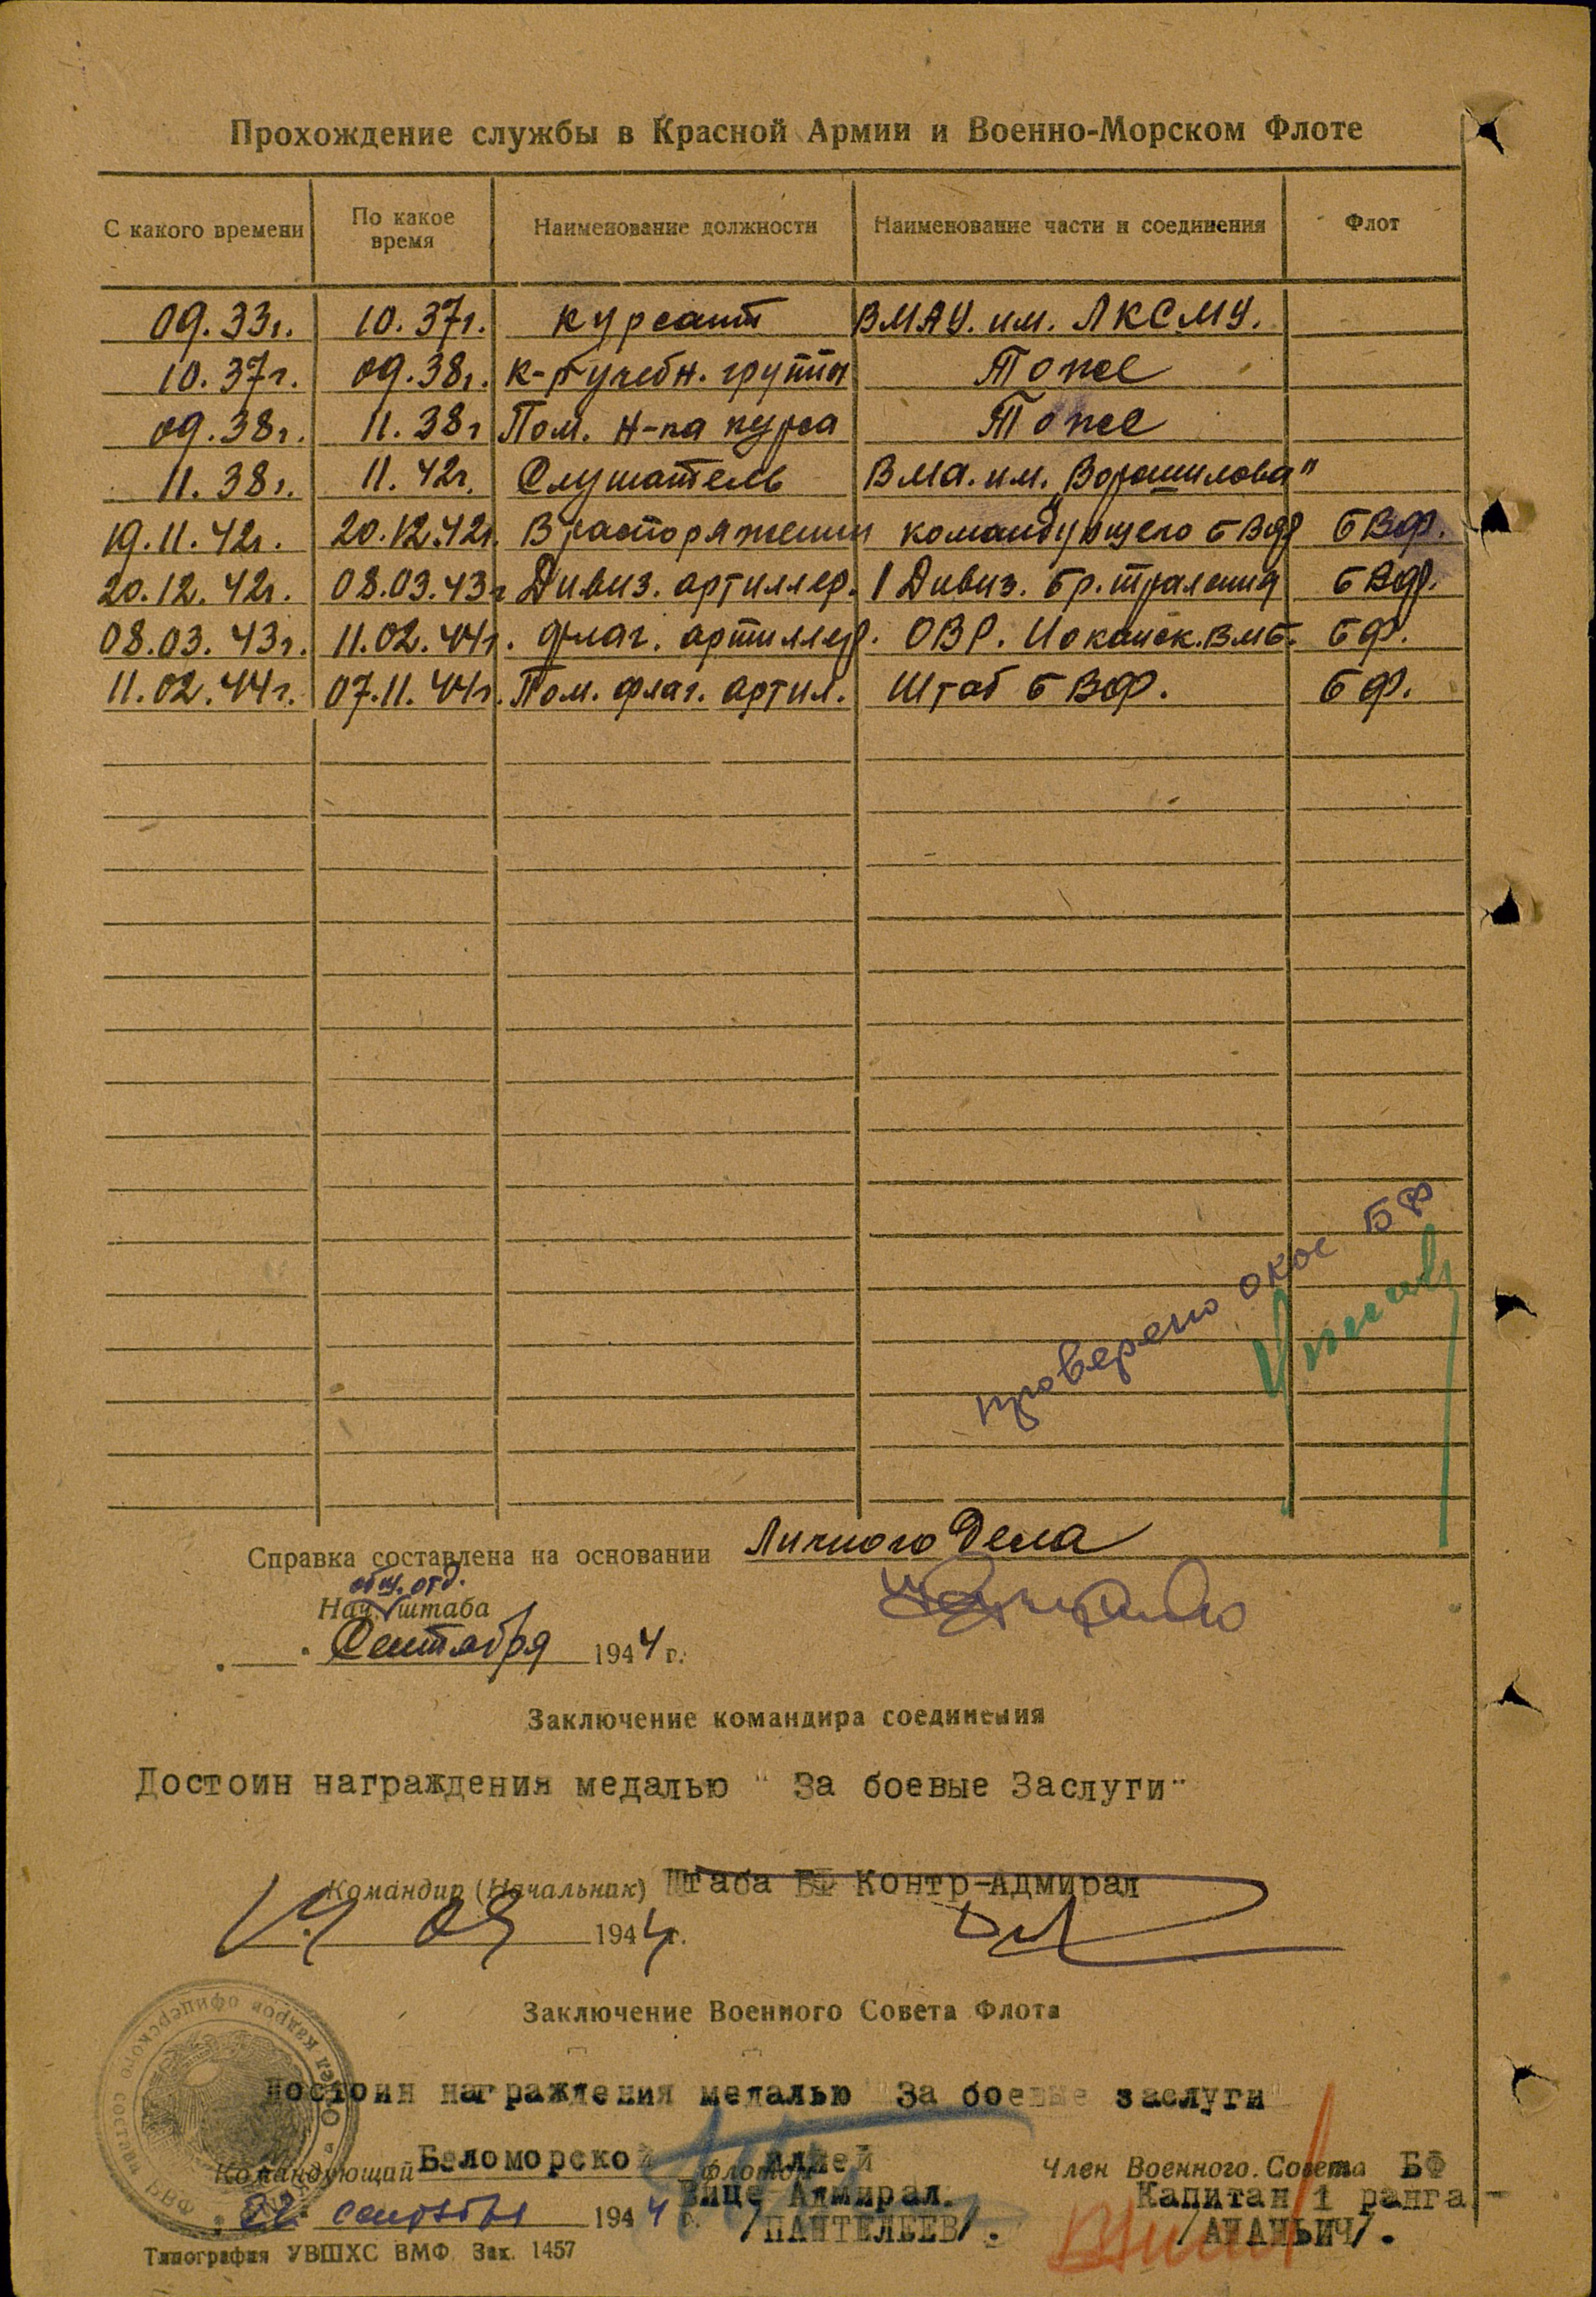 Прохождение службы в Красной Армии и Военно-Морском Флоте
С какого времени По какое время Наименование должности Наименование части и соединения Флот
09.33г. 10.37г. курсант ВМАУ. им. ЛКСМУ.
10.37г. 09.38г. к-р учебн. группы То же
09.38г. 11.38г Пом. н-ка курса То же
11.38г. 11.42г. Слушатель ВМА. им. "Ворошилова"
19.11.42г. 20.12.42г. В распоряжении командующего БВФ БВФ.
20.12.42г. 08.03.43г Дивиз. артиллер. 1 Дивиз. бр. траления БВФ.
08.03.43г. 11.02.44г. флаг. артиллер. ОВР. Иоканск. ВМБ. БФ.
11.02.44г. 07.11.44г. Пом. флаг. артил. Штаб БВФ. БФ.
проверено ОКОС БФ
Справка составлена на основании Личного Дела
общ. отд.
Нач. штаба
" " Сентября 1944 г.
Заключение командира соединения
Достоин награждения медалью " За боевые Заслуги"
Командир (Начальник) Штаба БФ Контр-Адмирал
19. 09 1944 г.
Заключение Военного Совета Флота
Достоин награждения медалью "За боевые заслуги"
Командующий Беломорской флотом лией Член Военного Совета БФ
Вице-Адмирал. Капитан 1 ранга-
" 22 " сентября 1944 г. /ПАНТЕЛЕЕВ/. /АНАНЬИЧ/.
Типография УВШХС ВМФ Зак. 1457
Отдел кадров офицерского состава БВФ